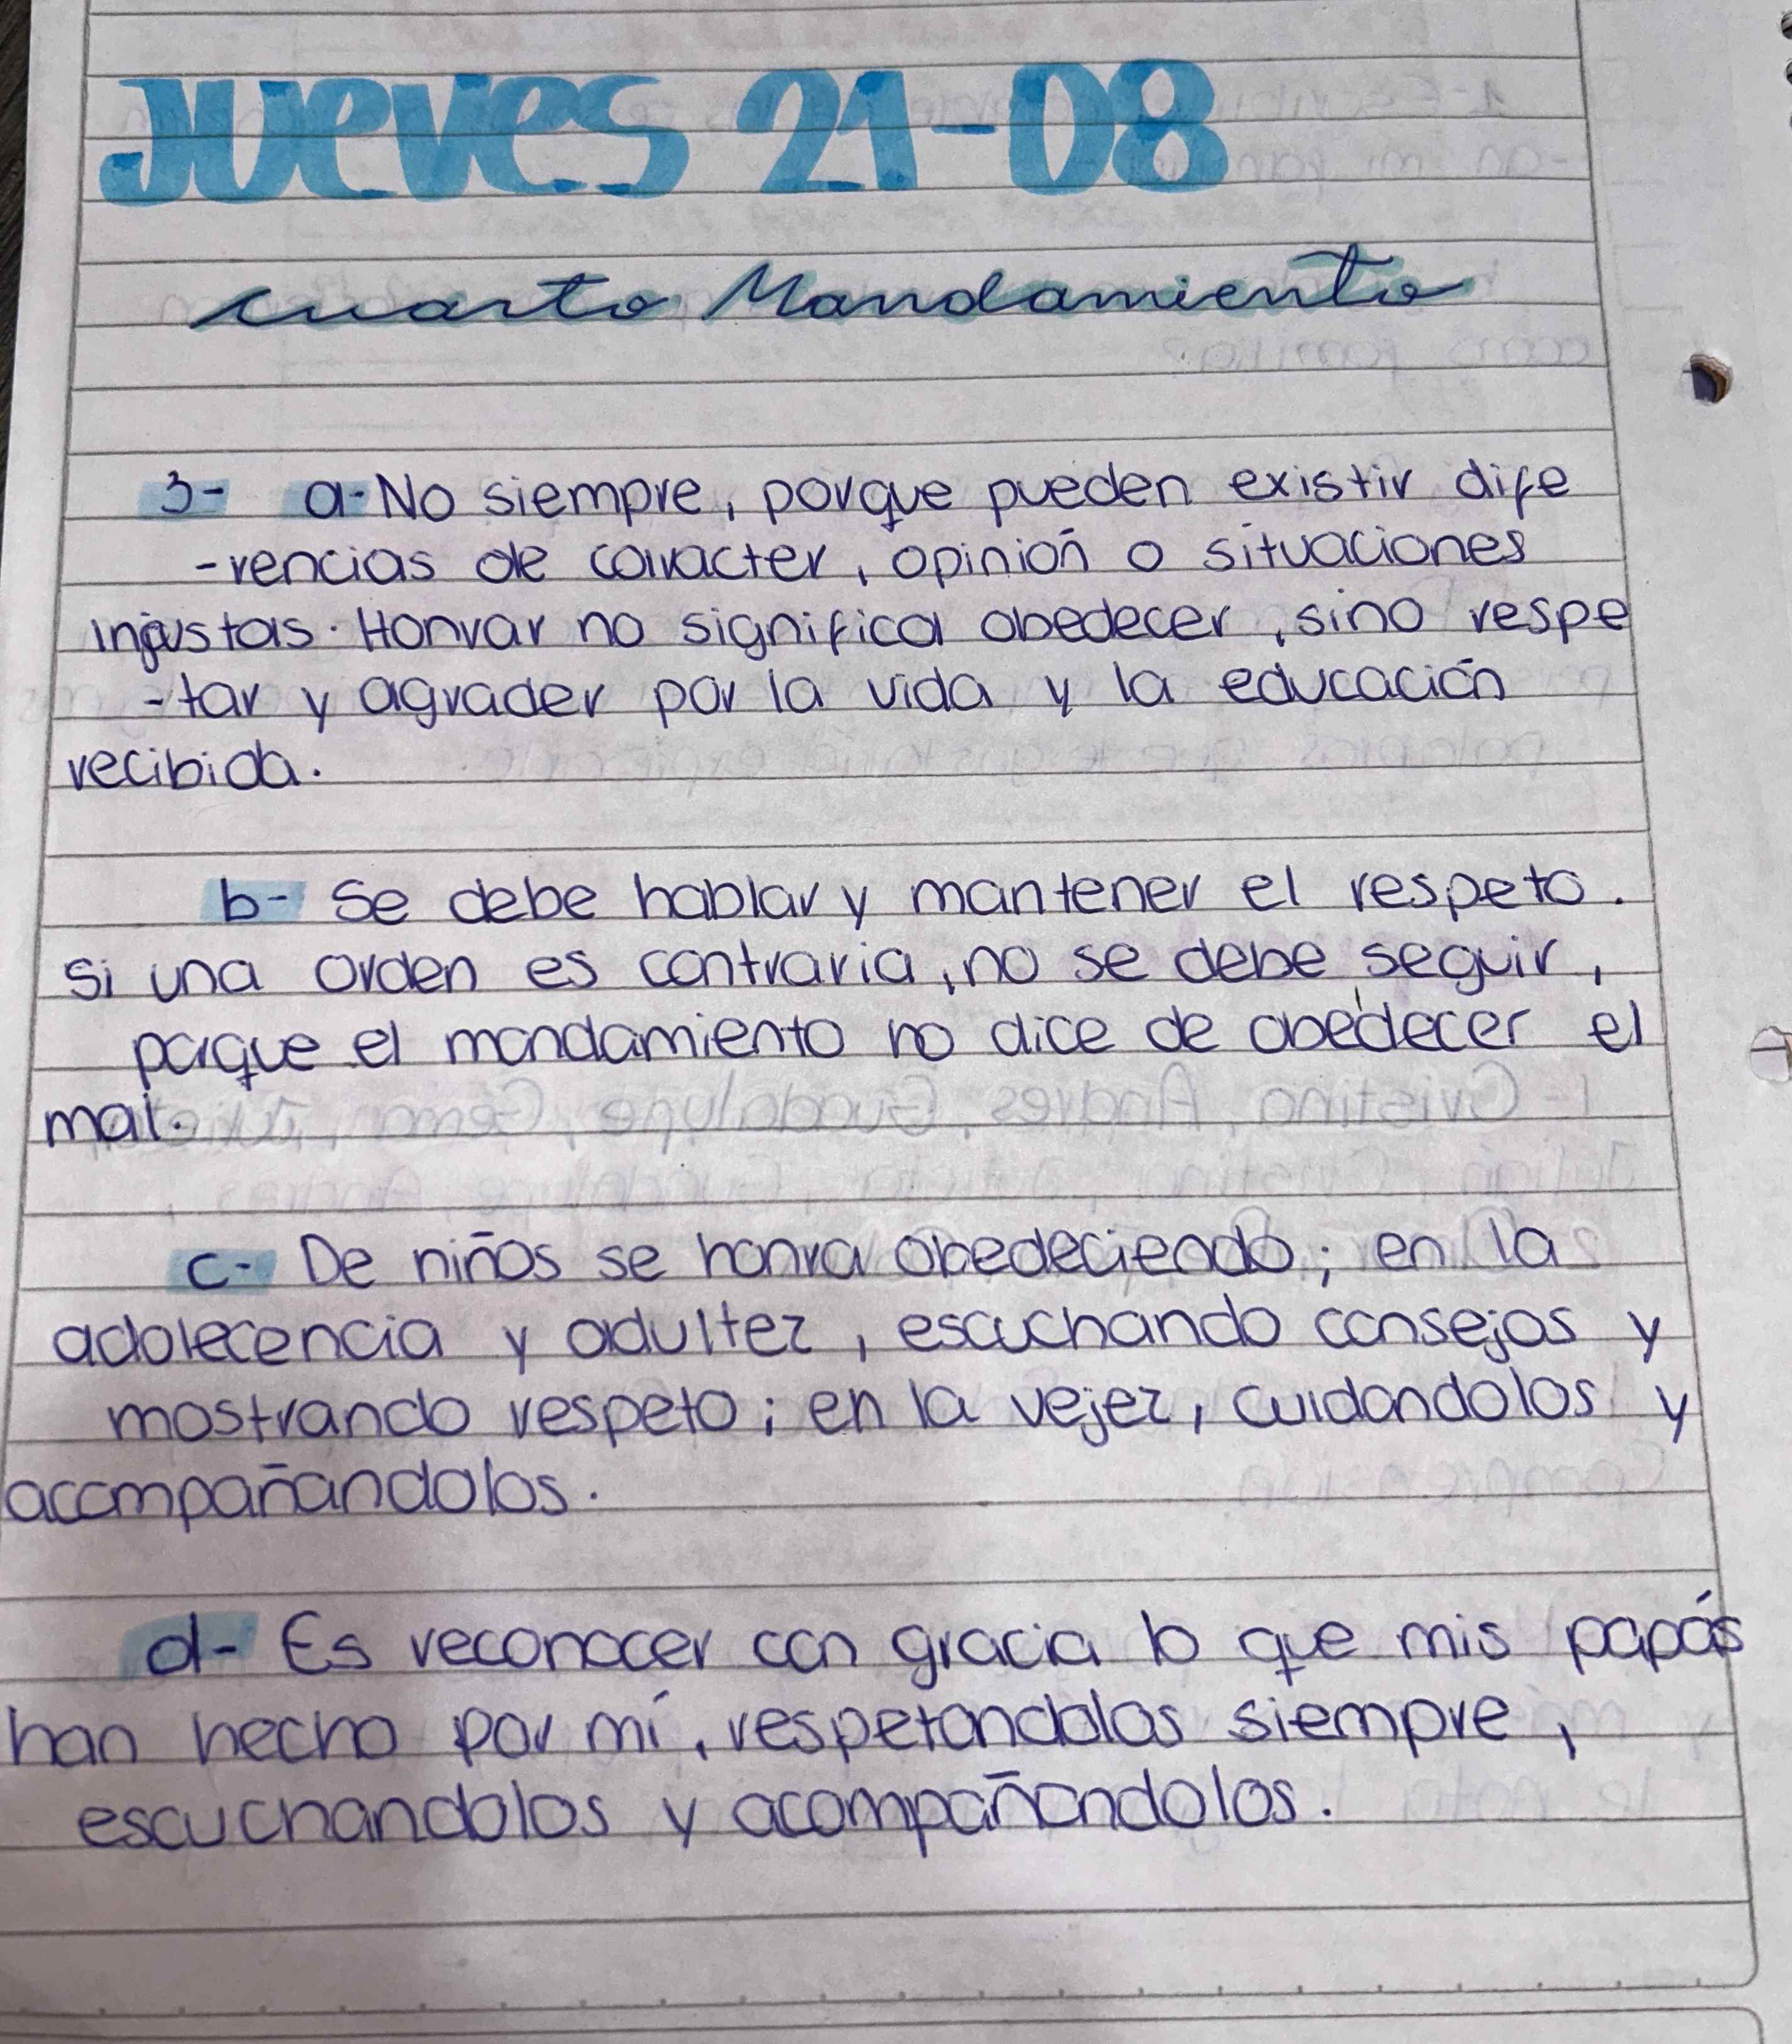 Jueves 21-08
Cuarto Mandamiento
3- a- No siempre, porque pueden existir dife
-rencias de caracter, opinión o situaciones
injustas. Honrar no significa obedecer, sino respe
-tar y agrader por la vida y la educación
recibida.
b- Se debe hablar y mantener el respeto.
Si una orden es contraria, no se debe seguir,
porque el mandamiento no dice de obedecer el
mal.
c- De niños se honra obedeciendo; en la
adolecencia y adultez, escuchando consejos y
mostrando respeto; en la vejez, cuidandolos y
acompañandolos.
d- Es reconocer con gracia lo que mis papás
han hecho por mí, respetandolos siempre,
escuchandolos y acompañandolos.